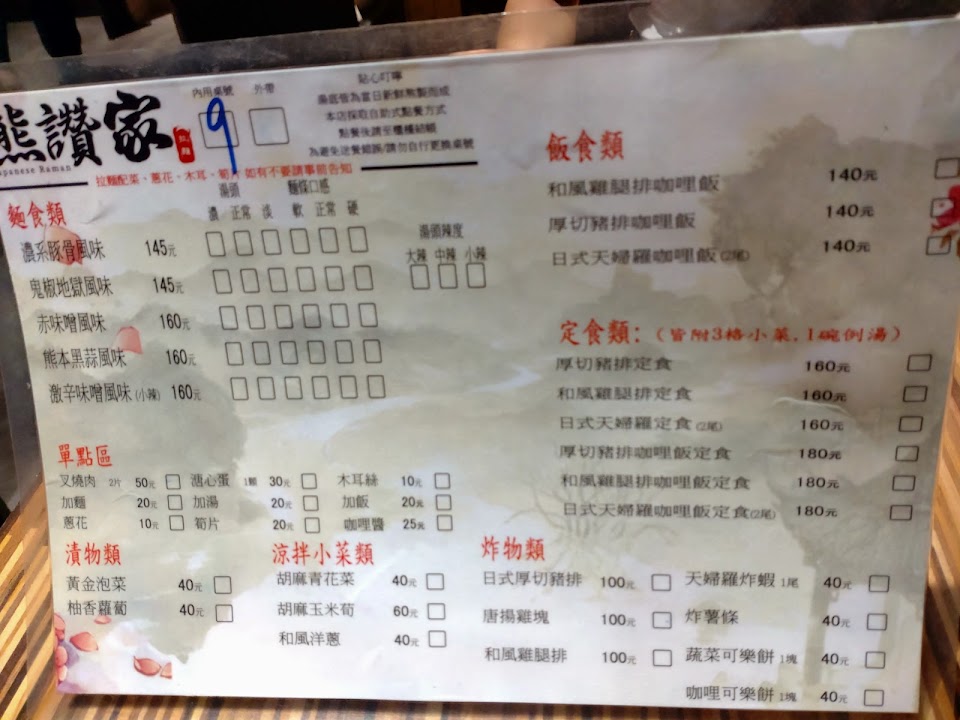 熊讚家 拉麵
Japanese Raman
內用桌號 外帶
9
貼心叮嚀
湯底皆為當日新鮮熬製而成
本店採取自助式點餐方式
點餐後請至櫃檯結帳
為避免送餐錯誤/請勿自行更換桌號
拉麵配菜、蔥花、木耳、筍片 如有不要請事前告知
麵食類
湯頭 麵條口感
濃 正常 淡 軟 正常 硬
湯頭辣度
大辣 中辣 小辣
濃系豚骨風味 145元
鬼椒地獄風味 145元
赤味噌風味 160元
熊本黑蒜風味 160元
激辛味噌風味(小辣) 160元
單點區
叉燒肉 2片 50元 溏心蛋 1顆 30元 木耳絲 10元
加麵 20元 加湯 20元 加飯 20元
蔥花 10元 筍片 20元 咖哩醬 25元
漬物類
黃金泡菜 40元
柚香蘿蔔 40元
涼拌小菜類
胡麻青花菜 40元
胡麻玉米荀 60元
和風洋蔥 40元
飯食類
和風雞腿排咖哩飯 140元
厚切豬排咖哩飯 140元
日式天婦羅咖哩飯(2尾) 140元
定食類:(皆附3格小菜.1碗例湯)
厚切豬排定食 160元
和風雞腿排定食 160元
日式天婦羅定食(2尾) 160元
厚切豬排咖哩飯定食 180元
和風雞腿排咖哩飯定食 180元
日式天婦羅咖哩飯定食(2尾) 180元
炸物類
日式厚切豬排 100元 天婦羅炸蝦 1尾 40元
唐揚雞塊 100元 炸薯條 40元
和風雞腿排 100元 蔬菜可樂餅 1塊 40元
咖哩可樂餅 1塊 40元